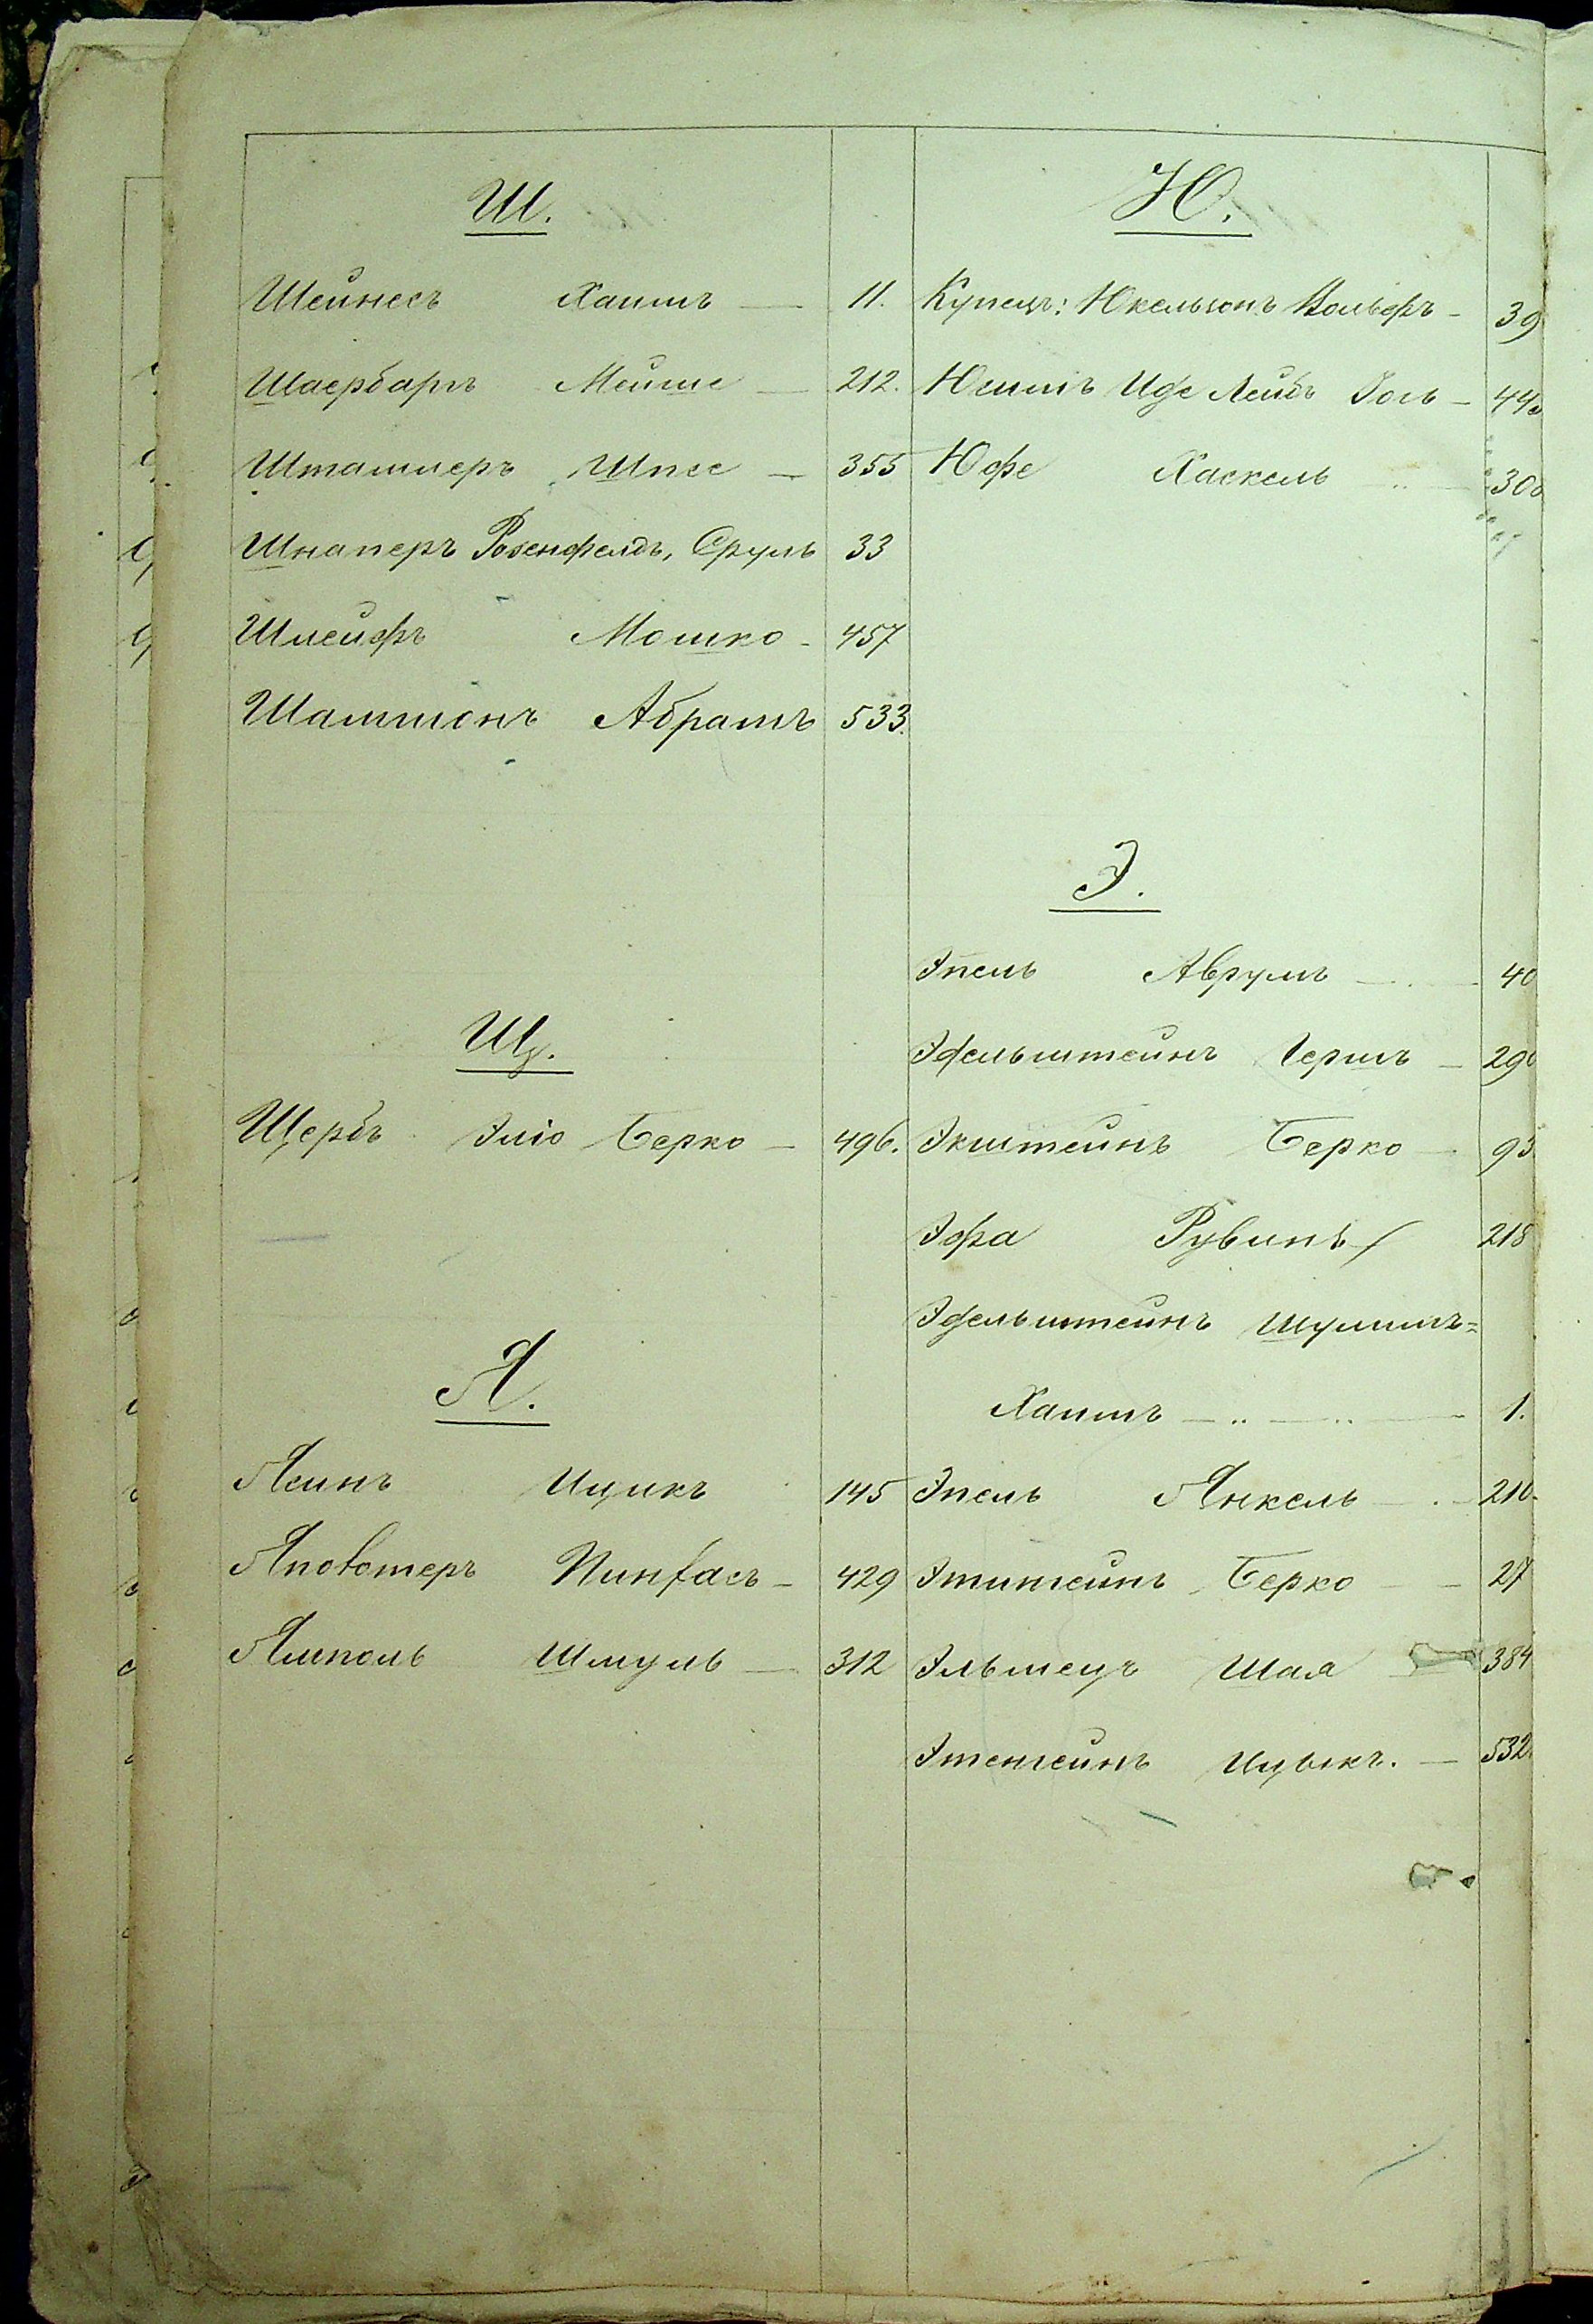 Ш.
Шейнесъ Хаимъ — 11.
Шаербаръ Мейше — 212.
Штаммеръ Шпес — 355
Шнаперъ Розенфелдъ, Сруль 33
Шлейфъ Мошко - 457
Шамшонъ Абрамъ 533.
Щ.
Щербъ Эліо Берко — 496.
Я.
Ясинъ Ицикъ 145
Яповотеръ Пинхасъ — 429
Ямполь Шмуль — 312
Ю.
Купецъ: Юкельзонъ Вольфъ — 39
Юшимъ Иде Лейбъ — 44
Юфе Хаскель — 30
Э.
Эпель Аврумъ — 40
Эдельштейнъ Гершъ — 29
Экштейнъ Берко — 93
Эфа Рувинъ 218
Эдельштейнъ Шулимъ=
Хаимъ — 1.
Эпель Янкель — 210.
Этингеинъ Берко — 27
Эльмецъ Шая 384
Этенгеинъ Ицыкъ. — 532.